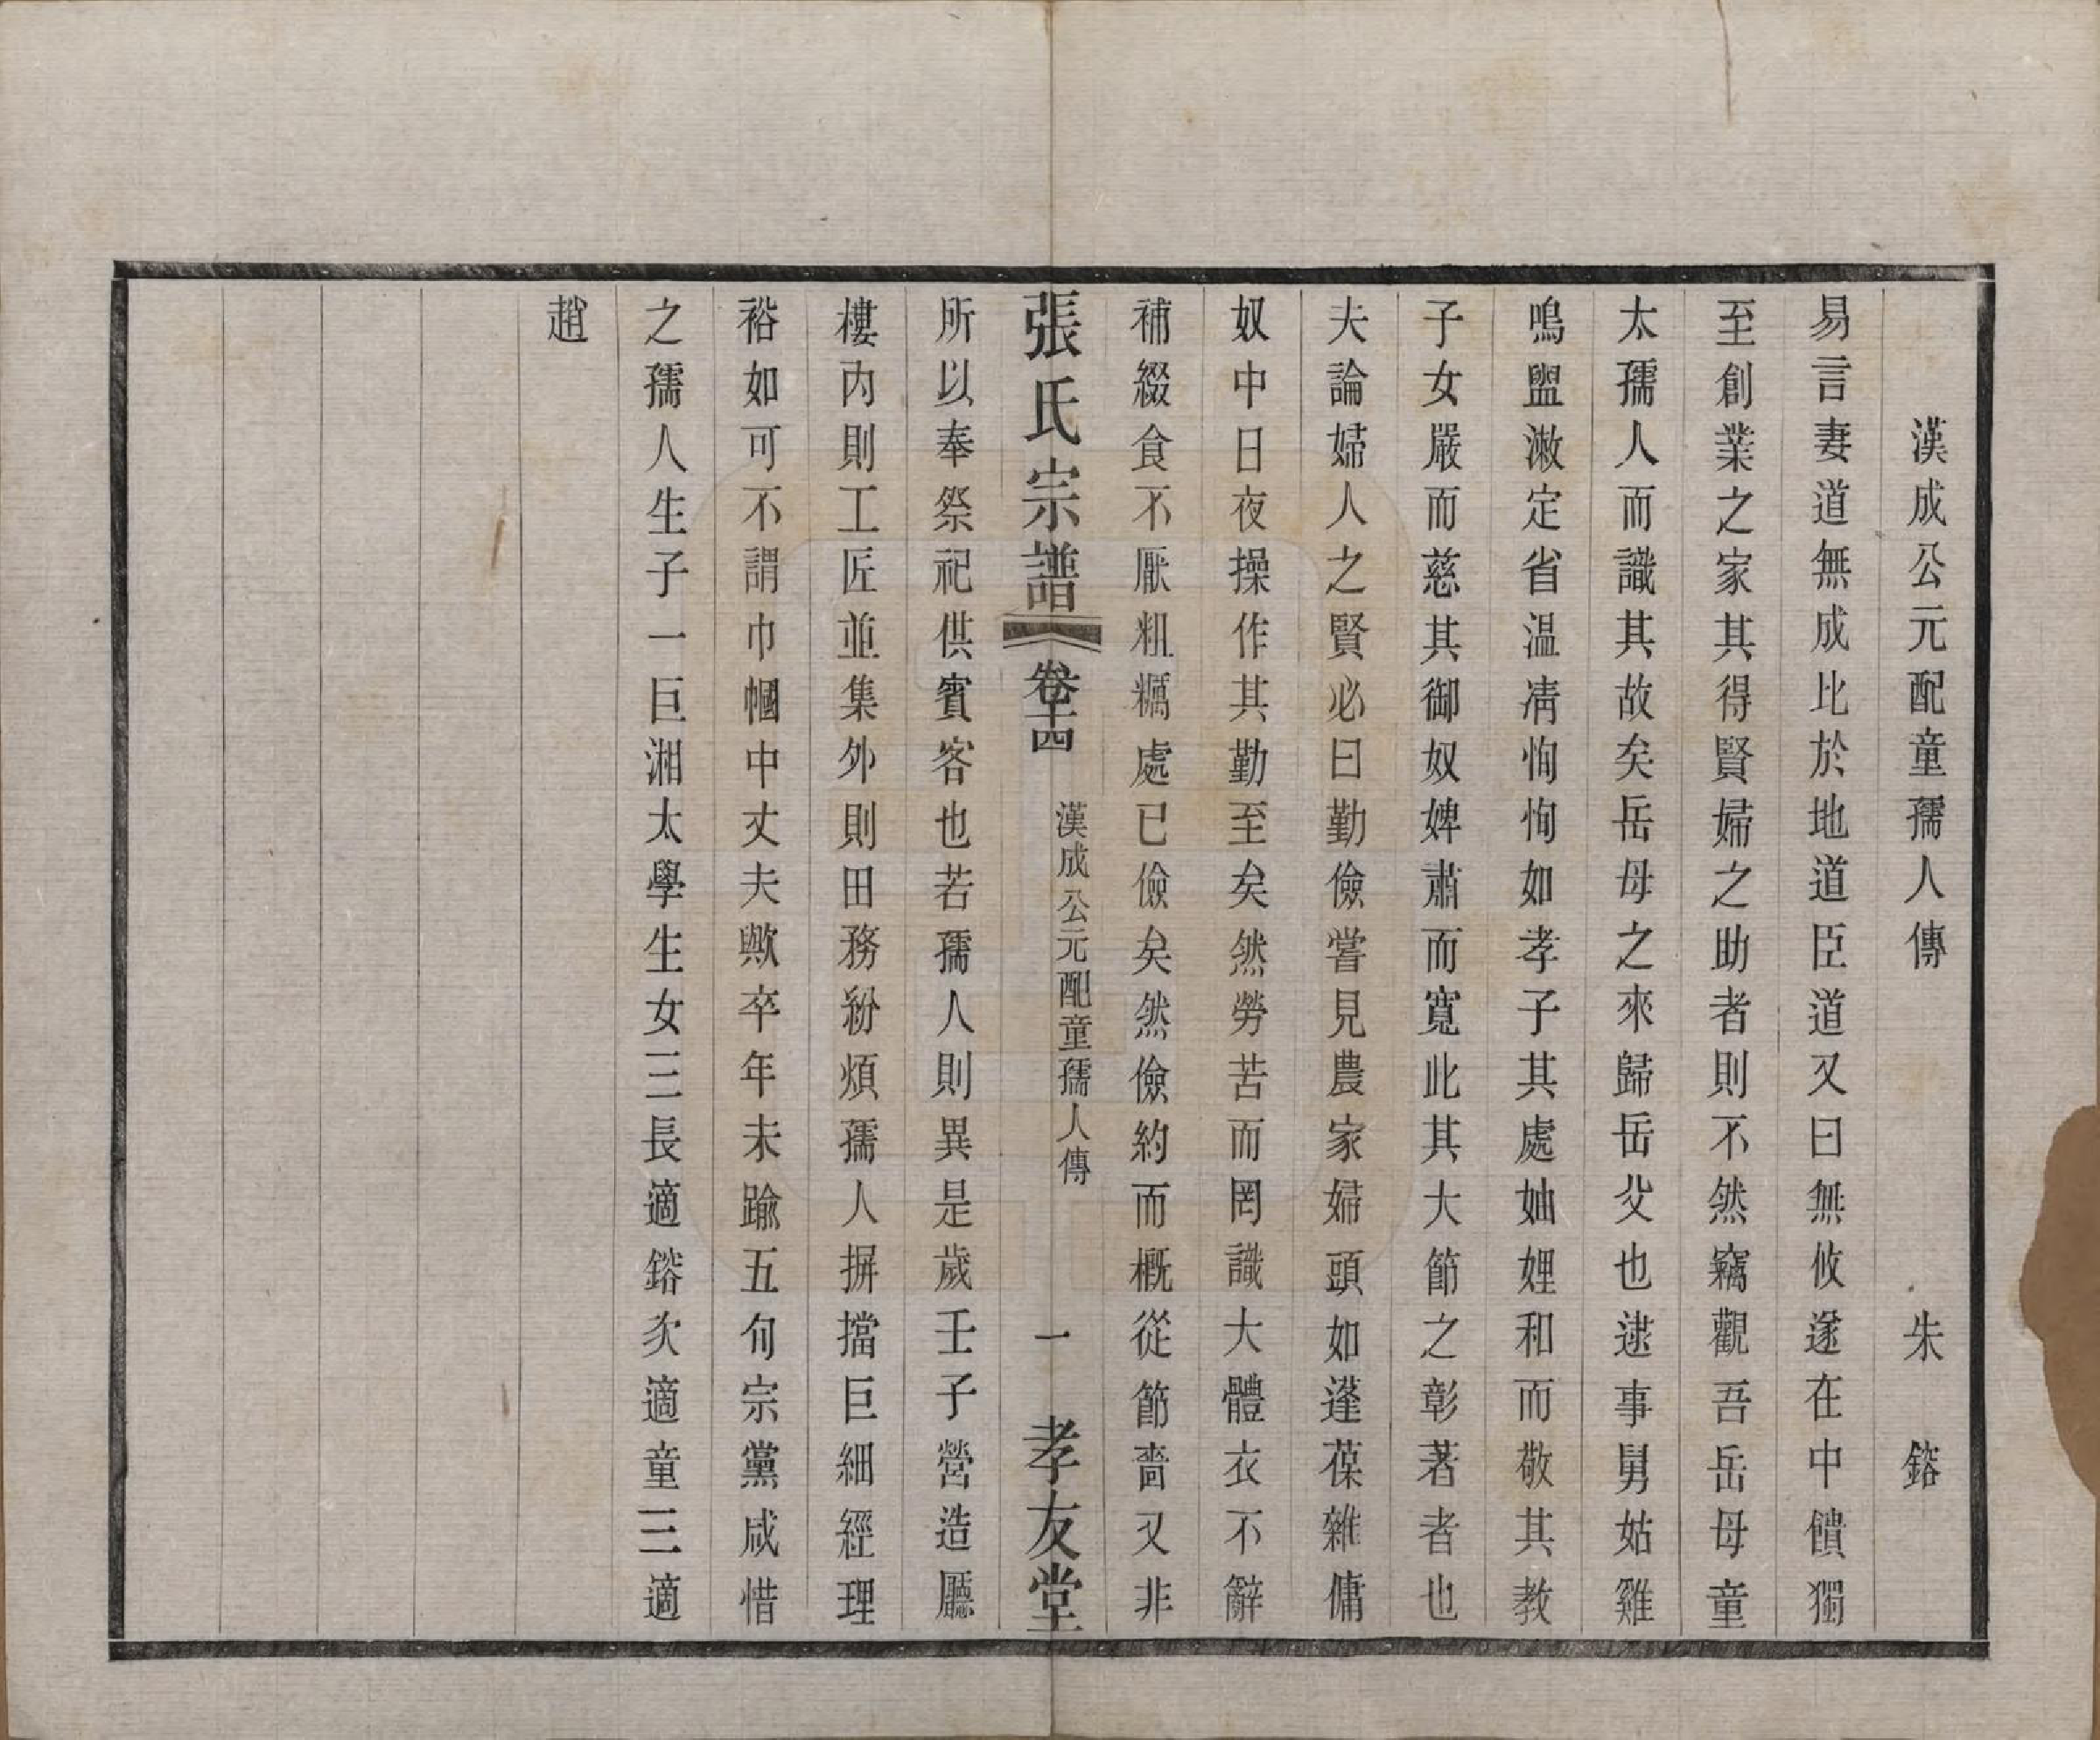 漢成公元配童孺人傳　朱鎔
易言妻道無成比於地道臣道又曰無攸遂在中饋獨
至創業之家其得賢婦之助者則不然竊觀吾岳母童
太孺人而識其故矣岳母之來歸岳父也逮事舅姑雞
鳴盥漱定省溫凊恂恂如孝子其處妯娌和而敬其教
子女嚴而慈其御奴婢肅而寬此其大節之彰著者也
夫論婦人之賢必曰勤儉嘗見農家婦頭如蓬葆雜傭
奴中日夜操作其勤至矣然勞苦而罔識大體衣不辭
補綴食不厭粗糲處已儉矣然儉約而概從節嗇又非
張氏宗譜　卷十四　漢成公元配童孺人傳　一　孝友堂
所以奉祭祀供賓客也若孺人則異是歲壬子營造廳
樓內則工匠並集外則田務紛煩孺人摒擋巨細經理
裕如可不謂巾幗中丈夫歟卒年未踰五旬宗黨咸惜
之孺人生子一巨湘太學生女三長適鎔次適童三適
趙